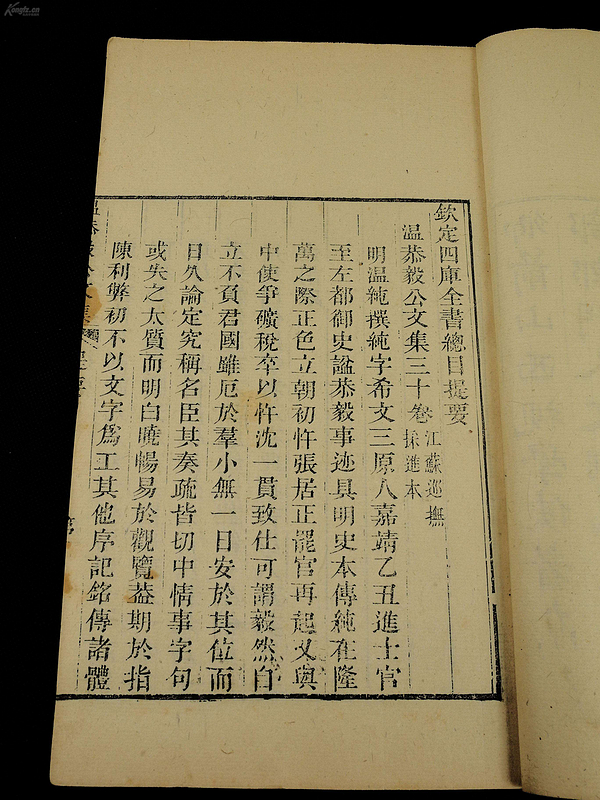 欽定四庫全書總目提要
溫恭毅公文集三十卷
江蘇巡撫
採進本
明溫純撰純字希文三原人嘉靖乙丑進士官
至左都御史諡恭毅事迹具明史本傳純在隆
萬之際正色立朝初忤張居正罷官再起又與
中使爭礦稅卒以忤沈一貫致仕可謂毅然自
立不負君國雖厄於羣小無一日安於其位而
日久論定究稱名臣其奏疏皆切中情事字句
或失之太質而明白曉暢易於觀覽葢期於指
陳利弊初不以文字爲工其他序記銘傳諸體
Kongfz.cn